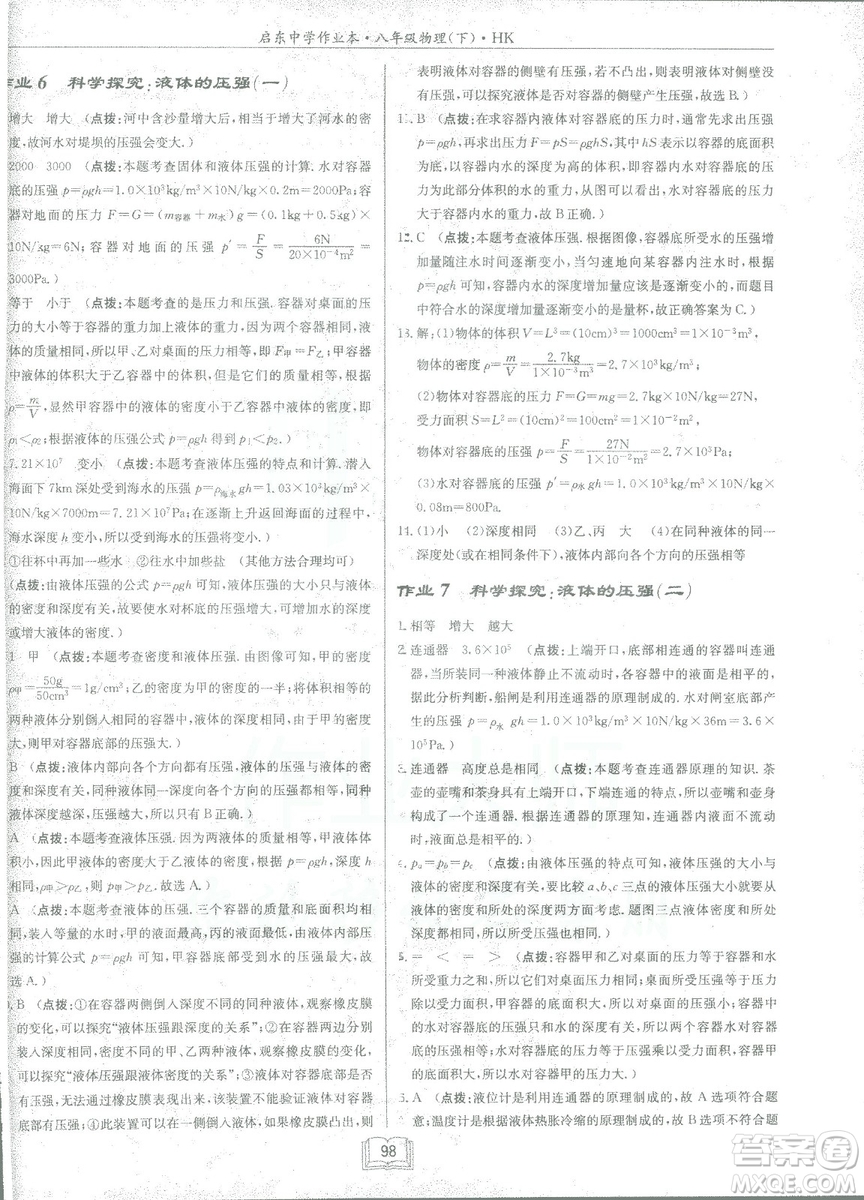 启东中学作业本·八年级物理(下)·HK
作业6 科学探究:液体的压强(一)
增大 增大 (点拨:河中含沙量增大后,相当于增大了河水的密
度,故河水对堤坝的压强会变大.)
2000 3000 (点拨:本题考查固体和液体压强的计算.水对容器
底的压强 p=ρgh=1.0×10³kg/m³×10N/kg×0.2m=2000Pa.
容器对地面的压力 F=G=(m容器+m水)g=(0.1kg+0.5kg)
×10N/kg=6N;容器对地面的压强 p′=F/S=6N/(20×10⁻⁴m²)=
3000Pa.)
等于 小于 (点拨:本题考查的是压力和压强.容器对桌面的压
力的大小等于容器的重力加上液体的重力,因为两个容器质量
相等,所以甲、乙对桌面的压力大小相等,即 F甲=F乙;甲容器
中液体的体积大于乙容器中液体的体积,质量相等,根据
ρ=m/V,显然甲容器中的液体的密度小于乙容器中液体密度,即
ρ₁<ρ₂;根据液体的压强公式 p=ρgh 得到 p₁<p₂.)
7.21×10⁷ 变小 (点拨:本题考查液体压强的特点和计算.潜入
海面下7km深处受到海水的压强 p=ρ海水gh=1.03×10³kg/m³
×10N/kg×7000m=7.21×10⁷Pa;在逐渐上升返回海面的过程中,
海水深度 h 变小,所以受到海水的压强将变小.)
①往杯中再加一些水 ②往水中加些盐 (其他方法合理均可)
(点拨:由液体压强的公式 p=ρgh 可知,液体压强的大小只与液体
的密度和深度有关,故要使水对杯底的压强增大,可增加水的深
度或增大液体的密度.)
1 甲 (点拨:本题考查密度和液体压强.由图像可知,
ρ甲=50g/50cm³=1g/cm³;乙的密度为甲的密度的一半;将体积相同的
两种液体分别倒入相同的容器中,液体的深度相同,由于甲的密度
大,则甲对容器底部的压强大.)
B (点拨:液体内部向各个方向都有压强,液体的压强与液体的
密度和深度有关,在同一深度,各方向压强相等.在同种液体中,
液体深度越深,压强越大,所以B正确.)
A (点拨:本题考查液体压强.因为两容器的质量相等,甲液体体积
小,因此甲液体密度大于乙液体密度.根据 p=ρgh,深度 h 相同,
ρ甲>ρ乙,则 p甲>p乙.故选A.)
A (点拨:本题考查液体压强.三个容器的质量和底面积都相
同,装入等量的水时,甲的液面最高,丙的液面最低,由液体内部压
强的计算公式 p=ρgh 可知,甲容器底部受到的压强最大.故
选A.)
B (点拨:①在容器两侧倒入深度不同的水时,观察橡皮膜
的变化,可以探究“液体压强跟深度的关系”;②在容器两边分别
装入深度相同的甲、乙两种液体,观察橡皮膜的变化情况,
可以探究“液体压强跟液体密度的关系”;③液体对容器底
的压强,无法通过橡皮膜表现出来,该装置不能验证液体对容器底
有压强;④此装置可以在一侧倒入水,如果橡皮膜凸出,则
表明液体对容器的侧壁有压强,若不凸出,则表明液体对容器的侧
壁没有压强,可以探究液体是否对容器的侧壁产生压强.故选B.)
11. B (点拨:在求容器内水对容器底的压力时,通常先求出压强
p=ρgh,然后根据公式 F=pS=ρghS,其中 hS 表示以容器的底面积
为底,以容器内水的深度为高的体积,即可求出水对容器底的压力
为此部分体积的水的重力,从图可以看出,对容器底的压力
大于容器内水的重力,故B正确.)
12. C (点拨:本题考查液体压强.根据图像,容器底所受的压强
增加量随注水时间逐渐变小,当匀速地向某容器内注水时,由
p=ρgh 可知,即相等时间内水的深度增加量应该是逐渐变小的,而题
目中符合水的深度增加量逐渐变小的是量杯.故正确答案为C.)
13. 解:(1)物体的体积 V=L³=(10cm)³=1000cm³=1×10⁻³m³,
物体的密度 ρ=m/V=2.7kg/(1×10⁻³m³)=2.7×10³kg/m³.
(2)物体对容器底的压力 F=G=mg=2.7kg×10N/kg=27N,
受力面积 S=L²=(10cm)²=100cm²=1×10⁻²m²,
物体对容器底的压强 p=F/S=27N/(1×10⁻²m²)=2.7×10³Pa.
(3)水对容器底的压强 p′=ρ水gh=1.0×10³kg/m³×10N/kg×
0.08m=800Pa.
14. (1)小 (2)深度相同 (3)乙、丙 大 (4)在同种液体的同一
深度处(或在相同条件下),液体内部向各个方向的压强相等
作业7 科学探究:液体的压强(二)
1. 相等 增大 越大
2. 连通器 3.6×10⁵ (点拨:上端开口,底部相连通的容器叫连通
器,当所装同一种液体静止不流动时,各容器中的液面是相平的,
据此分析判断,船闸是利用连通器的原理制成的.水对闸室底部产
生的压强 p=ρ水gh=1.0×10³kg/m³×10N/kg×36m=3.6×
10⁵Pa.)
3. 连通器 高度总是相同的 (点拨:本题考查连通器原理的知识.茶
壶的壶嘴和茶身具有上端开口、下端连通的特点,所以壶嘴和壶身
构成了一个连通器.根据连通器原理,连通器内液面不流动
时,液面总是相平的.)
4. pₐ=p_b=p_c (点拨:由液体压强的特点可知,液体压强的大小与
液体的密度和深度有关,要比较a、b、c三点的压强,就应看三点的
深度是否一样,密度是否一样.题图三点液体的深度相同,液体的
密度相同,所以三点的压强相等.)
5. = < = > (点拨:容器甲和乙对桌面的压力等于容器的
重力和水的重力之和,所以它们对桌面压力相等,压强等于
压力除以受力面积,而容器甲的底面积大,所以对桌面的
压强小;液体的压强只和水的深度有关,深度相同,所以容器中
的水对容器底部压强相等;压力等于压强乘以受力面积,容器甲
的底面积大,所以甲容器底部受到的压力大.)
A (点拨:液位计是利用连通器的原理制成的,故A选项符合题
意;温度计是根据液体热胀冷缩的原理制成的,故B选项不符合题
98
答案圈
MXQE.COM